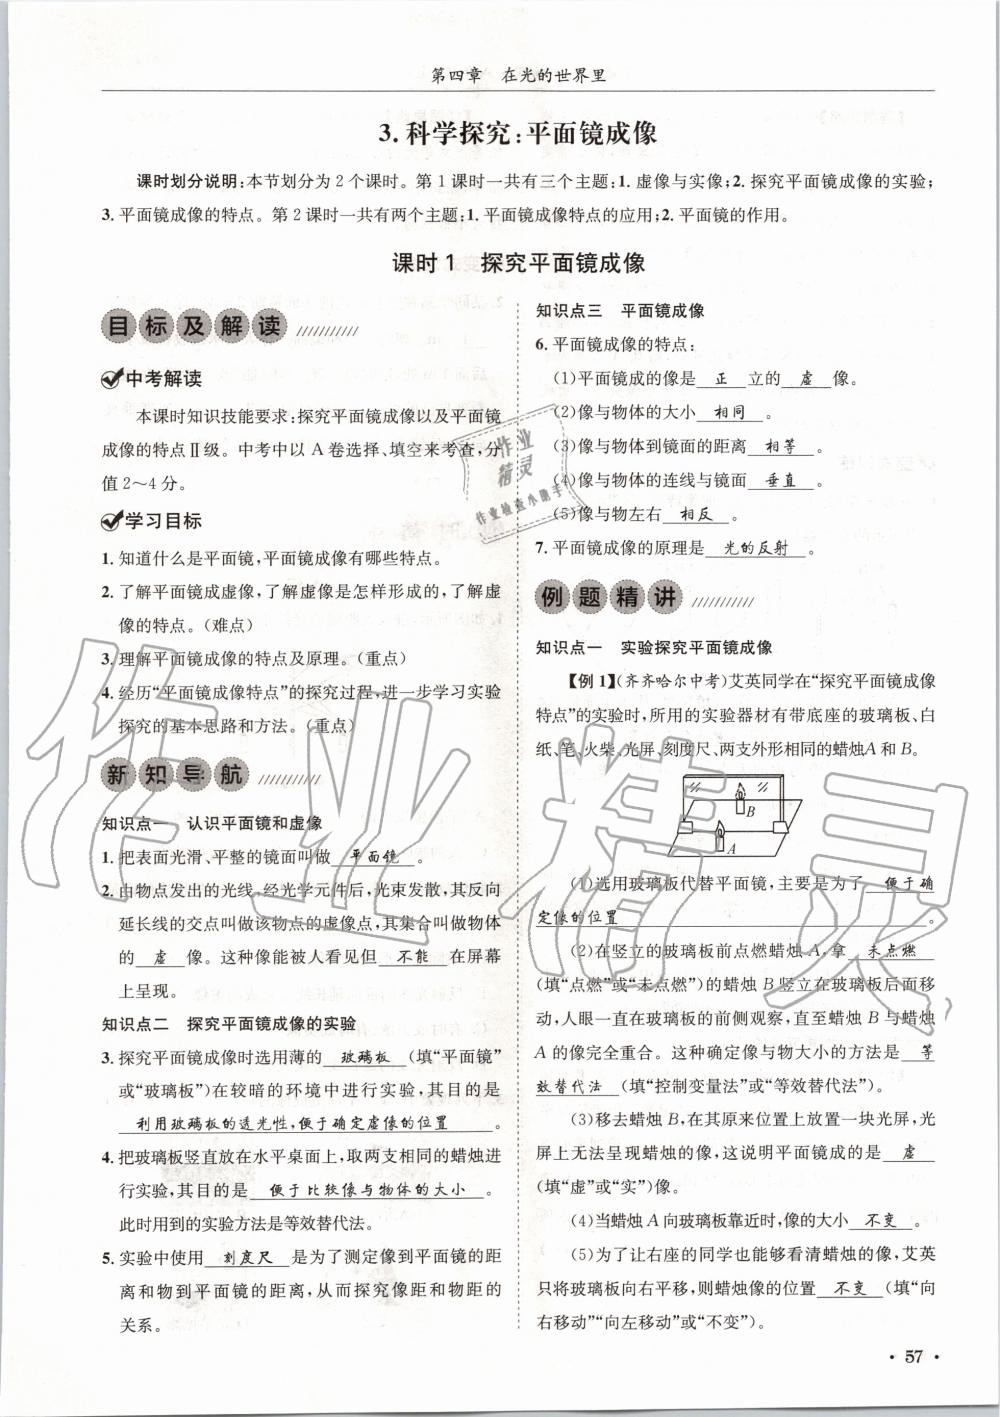 第四章　在光的世界里
3. 科学探究:平面镜成像
课时划分说明:本节划分为2个课时。第1课时一共有三个主题:1. 虚像与实像;2. 探究平面镜成像的实验;
3. 平面镜成像的特点。第2课时一共有两个主题:1. 平面镜成像特点的应用;2. 平面镜的作用。
课时1　探究平面镜成像
目标及解读
中考解读
本课时知识技能要求:探究平面镜成像以及平面镜
成像的特点Ⅱ级。中考中以A卷选择、填空来考查,分
值2~4分。
学习目标
1. 知道什么是平面镜,平面镜成像有哪些特点。
2. 了解平面镜成虚像,了解虚像是怎样形成的,了解虚
像的特点。(难点)
3. 理解平面镜成像的特点及原理。(重点)
4. 经历“平面镜成像特点”的探究过程,进一步学习实验
探究的基本思路和方法。(重点)
新知导航
知识点一　认识平面镜和虚像
1. 把表面光滑、平整的镜面叫做 平面镜 。
2. 由物点发出的光线,经光学元件后,光束发散,其反向
延长线的交点叫做该物点的虚像点,其集合叫做物体
的 虚 像。这种像能被人看见但 不能 在屏幕
上呈现。
知识点二　探究平面镜成像的实验
3. 探究平面镜成像时选用薄的 玻璃板 (填“平面镜”
或“玻璃板”)在较暗的环境中进行实验,其目的是
利用玻璃板的透光性,便于确定虚像的位置 。
4. 把玻璃板竖直放在水平桌面上,取两支相同的蜡烛进
行实验,其目的是 便于比较像与物体的大小 。
此时用到的实验方法是等效替代法。
5. 实验中使用 刻度尺 是为了测定像到平面镜的距
离和物到平面镜的距离,从而探究像距和物距的
关系。
知识点三　平面镜成像
6. 平面镜成像的特点:
(1)平面镜成的像是 正 立的 虚 像。
(2)像与物体的大小 相同 。
(3)像与物体到镜面的距离 相等 。
(4)像与物体的连线与镜面 垂直 。
(5)像与物左右 相反 。
7. 平面镜成像的原理是 光的反射 。
例题精讲
知识点一　实验探究平面镜成像
【例1】(齐齐哈尔中考)艾英同学在“探究平面镜成像
特点”的实验时,所用的实验器材有带底座的玻璃板、白
纸、笔、火柴、光屏、刻度尺、两支外形相同的蜡烛A和B。
B
A
(1)选用玻璃板代替平面镜,主要是为了 便于确
定像的位置 。
(2)在竖立的玻璃板前点燃蜡烛A,拿 未点燃
(填“点燃”或“未点燃”)的蜡烛B竖立在玻璃板后面移
动,人眼一直在玻璃板的前侧观察,直至蜡烛B与蜡烛
A的像完全重合。这种确定像与物大小的方法是 等
效替代法 (填“控制变量法”或“等效替代法”)。
(3)移去蜡烛B,在其原来位置上放置一块光屏,光
屏上无法呈现蜡烛的像,这说明平面镜成的是 虚
(填“虚”或“实”)像。
(4)当蜡烛A向玻璃板靠近时,像的大小 不变 。
(5)为了让右座的同学也能够看清蜡烛的像,艾英
只将玻璃板向右平移,则蜡烛像的位置 不变 (填“向
右移动”“向左移动”或“不变”)。
· 57 ·
作业精灵
作业检查小助手
作业精灵